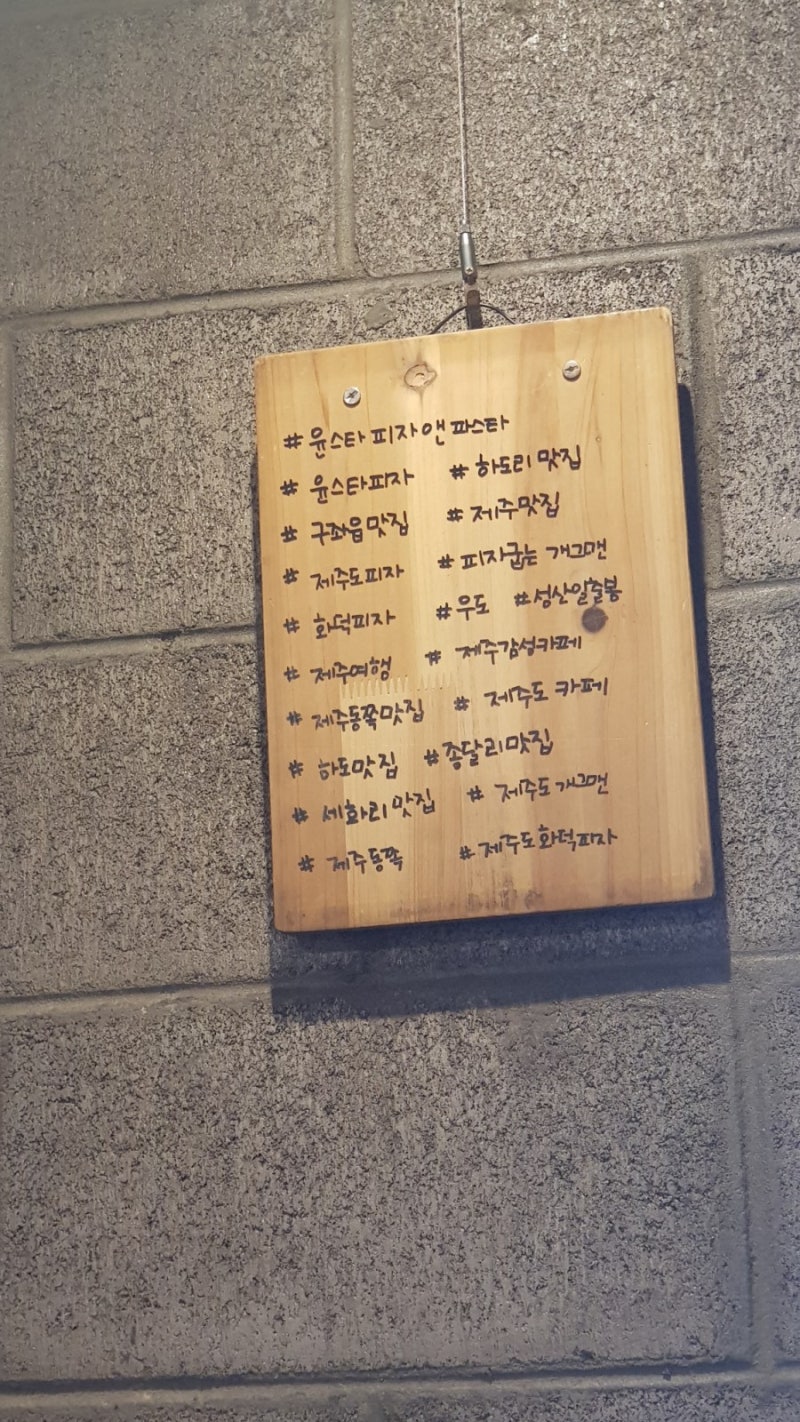 #윤스타피자앤파스타
#윤스타피자 #하도리맛집
#구좌읍맛집 #제주맛집
#제주도피자 #피자굽는 개그맨
#화덕피자 #우도 #성산일출봉
#제주여행 #제주감성카페
#제주동쪽맛집 #제주도 카페
#하도맛집 #종달리맛집
#세화리맛집 #제주도개그맨
#제주동쪽 #제주도화덕피자